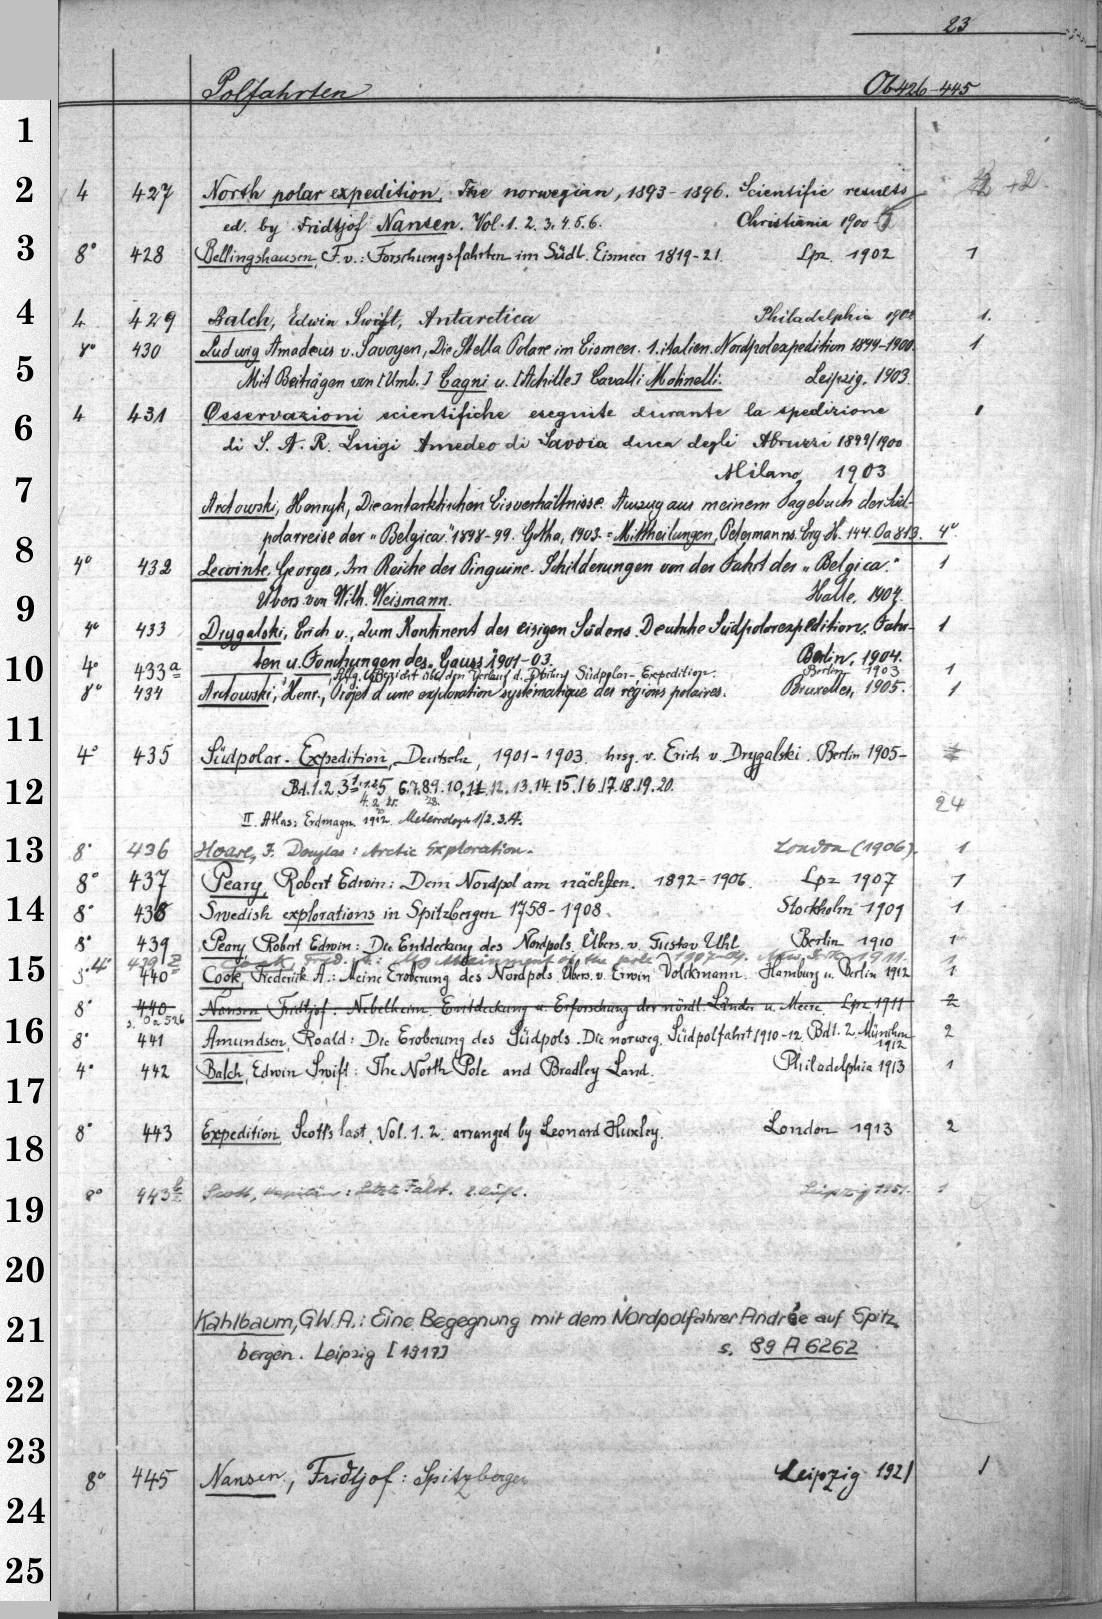 23
Polfahrten Ob 426-445
1
2
4 427 North polar expedition, The norwegian, 1893-1896. Scientific results
ed. by Fridtjof Nansen. Vol. 1. 2. 3. 4. 5. 6. Christiania 1900-
3
8° 428 Bellingshausen, F. v.: Forschungsfahrten im Südl. Eismeer 1819-21. Lpz. 1902 1
4
4 429 Balch, Edwin Swift, Antarctica Philadelphia 1902 1.
8° 430 Ludwig Amadeus v. Savoyen, Die Stella Polare im Eismeer. 1. italien. Nordpolexpedition 1899-1900. 1
5
Mit Beiträgen von [Umb.] Cagni u. [Achille] Cavalli Molinelli. Leipzig. 1903.
4 431 Osservazioni scientifiche eseguite durante la spedizione 1
6
di S. A. R. Luigi Amedeo di Savoia duca degli Abruzzi 1899/1900
Milano, 1903
7
Arctowski, Henryk, Die antarktischen Eisverhältnisse. Auszug aus meinem Tagebuch der Süd-
polarreise der "Belgica". 1898-99. Gotha, 1903. = Mittheilungen, Petermanns. Erg. H. 144. Oa 813. 4°.
8
4° 432 Lecointe, Georges, Im Reiche der Pinguine. Schilderungen von der Fahrt der "Belgica." 1
Übers. von Wilh. Weismann. Halle, 1904.
9
4° 433 Drygalski, Erich v., Zum Kontinent des eisigen Südens. Deutsche Südpolarexpedition. Fahr- 1
ten u. Forschungen des "Gauss" 1901-03. Berlin, 1904.
10
4° 433a Allg. Bericht üb. den Verlauf d. Südpolar-Expedition. Berlin 1903 1
8° 434 Arctowski, Henr., Projet d'une exploration systématique des régions polaires. Bruxelles, 1905. 1
11
4° 435 Südpolar-Expedition, Deutsche, 1901-1903, hrsg. v. Erich v. Drygalski. Berlin 1905-
Bd. 1. 2. 3 5 6. 7. 8. 9. 10. 11. 12. 13. 14. 15. 16. 17. 18. 19. 20.
12
24
II. Atlas: Erdmagn. 1912. Meteorologie 1/2. 3. 4.
13
8° 436 Hoare, F. Douglas: Arctic Exploration. London (1906). 1
8° 437 Peary, Robert Edwin: Dem Nordpol am nächsten. 1892-1906. Lpz 1907 1
14
8° 438 Swedish explorations in Spitzbergen 1758-1908. Stockholm 1909 1
8° 439 Peary, Robert Edwin: Die Entdeckung des Nordpols. Übers. v. Gustav Uhl. Berlin 1910 1
4° Cook, Fred. A.: My attainment of the pole 1907-09. New York 1911. 1
15
440 Cook, Frederik A.: Meine Eroberung des Nordpols. Übers. v. Erwin Volckmann. Hamburg u. Berlin 1912 1
8° 440 Nansen Fridtjof: Nebelheim. Entdeckung u. Erforschung der nördl. Länder u. Meere Lpz 1911 2
s. Oa 526
16
8° 441 Amundsen, Roald: Die Eroberung des Südpols. Die norweg. Südpolfahrt 1910-12. Bd 1. 2. München 1912 2
4° 442 Balch, Edwin Swift: The North Pole and Bradley Land. Philadelphia 1913 1
17
8° 443 Expedition, Scott's last. Vol. 1. 2. arranged by Leonard Huxley. London 1913 2
18
8° 443b Scott, Kapitän: Letzte Fahrt. 2. Aufl. Leipzig 1
19
20
21
Kahlbaum, G.W.A.: Eine Begegnung mit dem Nordpolfahrer Andrée auf Spitz
bergen. Leipzig [1917] s. 89 A 6262
22
23
8° 445 Nansen, Fridtjof: Spitzbergen Leipzig 1921 1
24
25